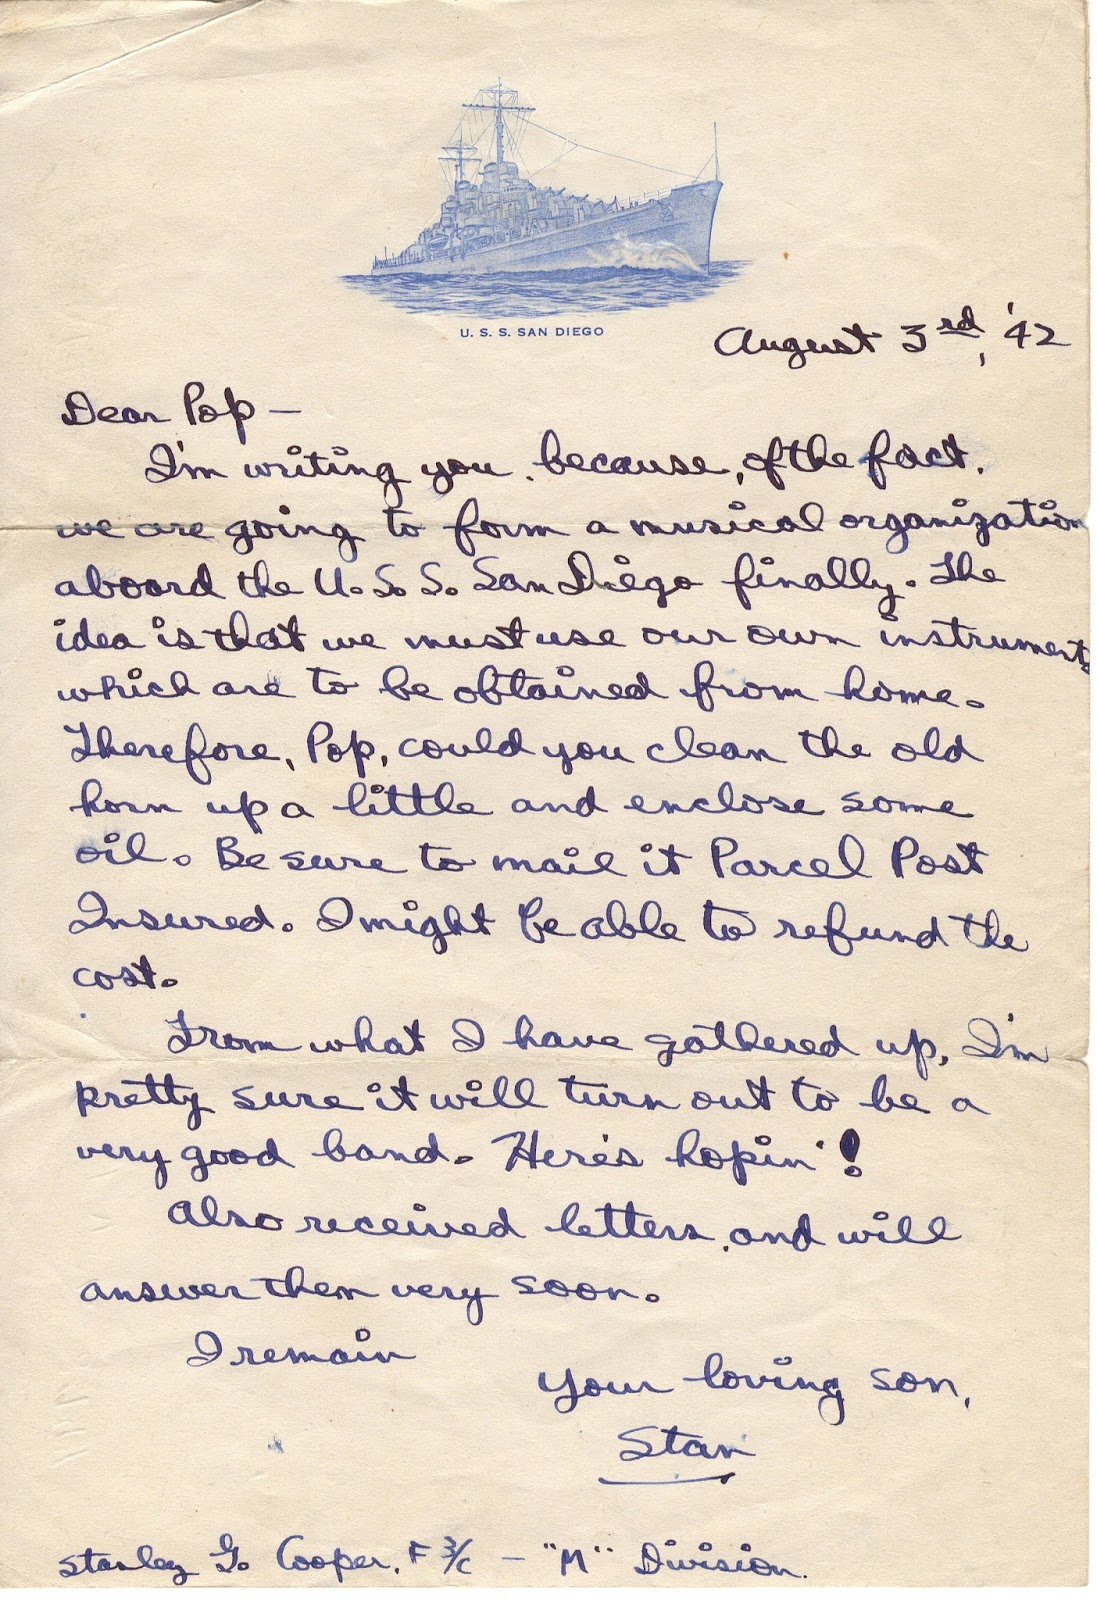 U. S. S. SAN DIEGO
August 3rd, '42
Dear Pop —
I'm writing you, because, of the fact,
we are going to form a musical organization
aboard the U. S. S. San Diego finally. The
idea is that we must use our own instruments
which are to be obtained from home.
Therefore, Pop, could you clean the old
horn up a little and enclose some
oil. Be sure to mail it Parcel Post
Insured. I might be able to refund the
cost.
From what I have gathered up, I'm
pretty sure it will turn out to be a
very good band. Here's hopin'!
Also received letters, and will
answer them very soon.
I remain
Your loving son,
Stan
Stanley G. Cooper, F 3/c — "M" Division.